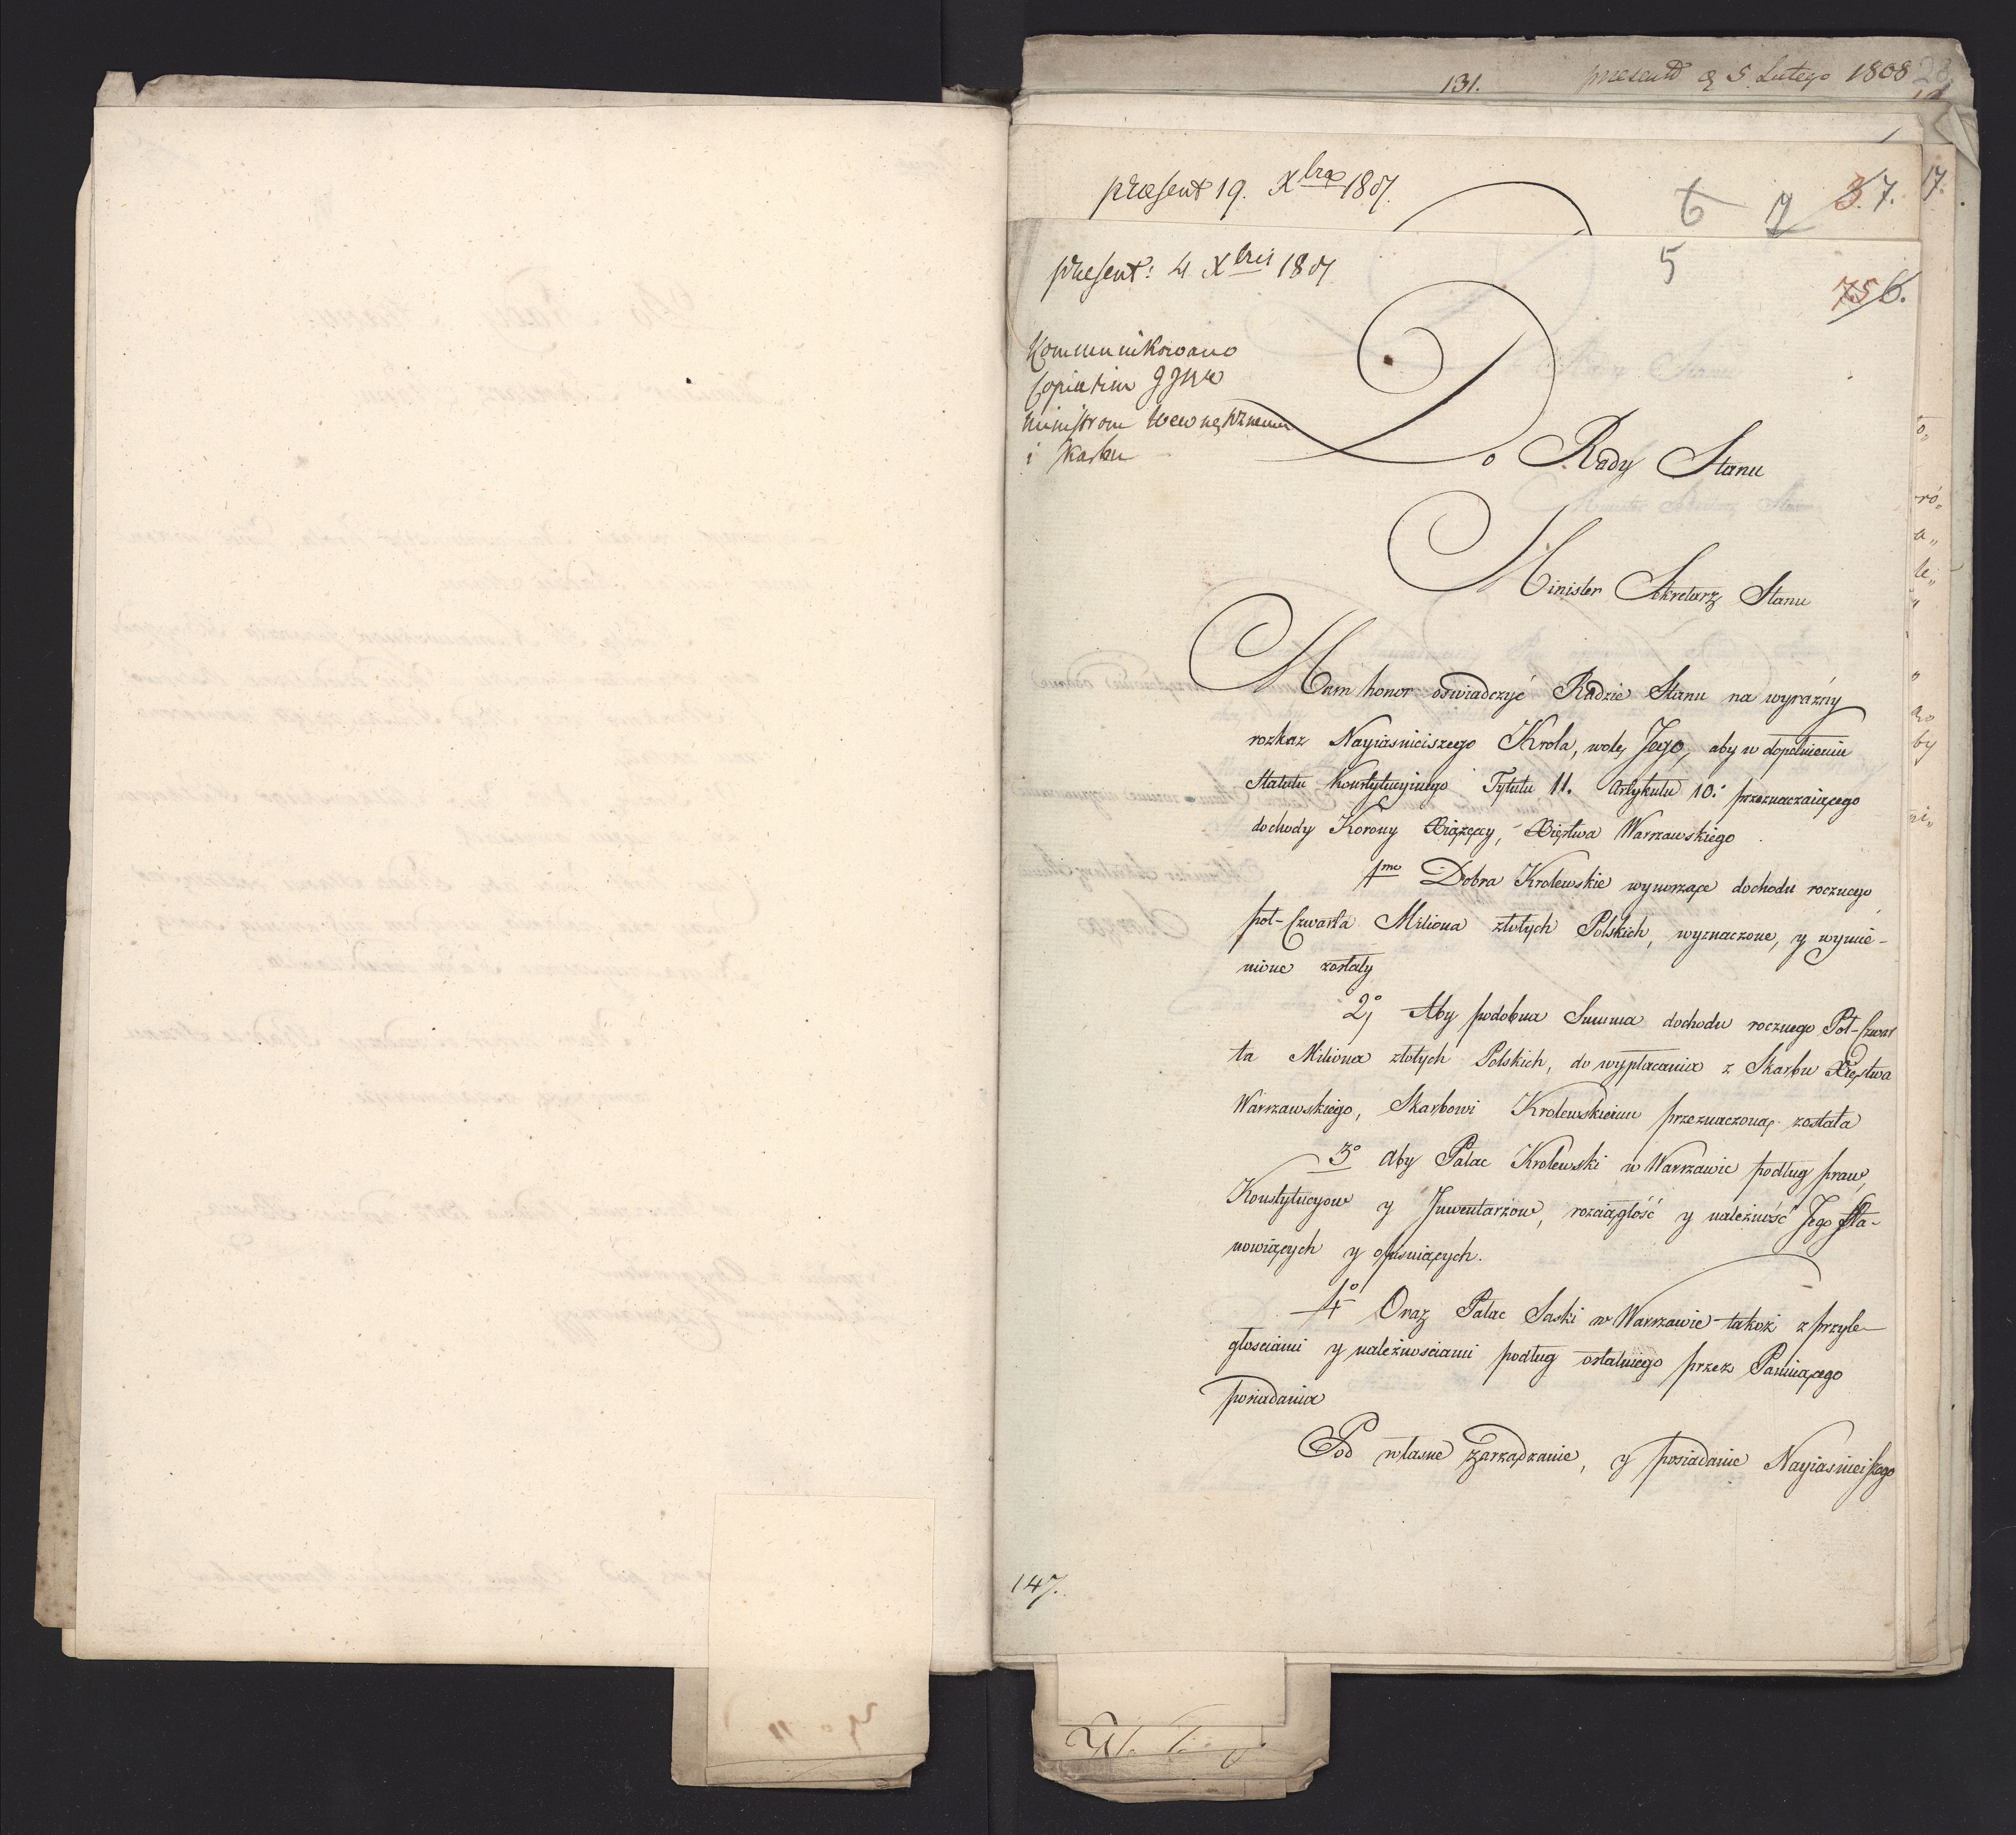 131. present d 5. Lutego 1808
present 19. Xbra 1807.
6 7 3. 7. 17.
present: 4 Xbris 1807
5
75 6.
Kommunikowano
Copiatim JJWW
Ministrom Wewnętrznemu
i Skarbu
Do Rady Stanu
Minister Sekretarz Stanu
Mam honor oswiadczyć Radzie Stanu na wyraźny
rozkaz Nayiasnieiszego Krola, wolę Jego, aby w dopełnieniu
Statutu Konstytucyinego Tytułu 11. Artykułu 10. przeznaczaiącego
dochody Korony Xiążęcy, Xięstwa Warszawskiego
1mo Dobra Krolewskie wynorzące dochodu rocznego
poł-Czwarta Miliona złotych Polskich, wyznaczone, y wymie-
nione zostały
2o Aby podobna Summa dochodu rocznego Poł-Czwar
ta Miliona złotych Polskich, do wypłacania z Skarbu Xięstwa
Warszawskiego, Skarbowi Krolewskiemu przeznaczoną została
3o Aby Pałac Krolewski w Warszawie podług praw,
Konstytucyow y Inwentarzow, rozciągłość y należność Jego sta-
nowiących y opisuiących.
4o Oraz Pałac Saski w Warszawie takoż z przyle-
głosciami y należnosciami podług ostatniego przez Panuiącego
posiadania
Pod własne Zarządzanie, y posiadanie Nayiasnieiszego
147.